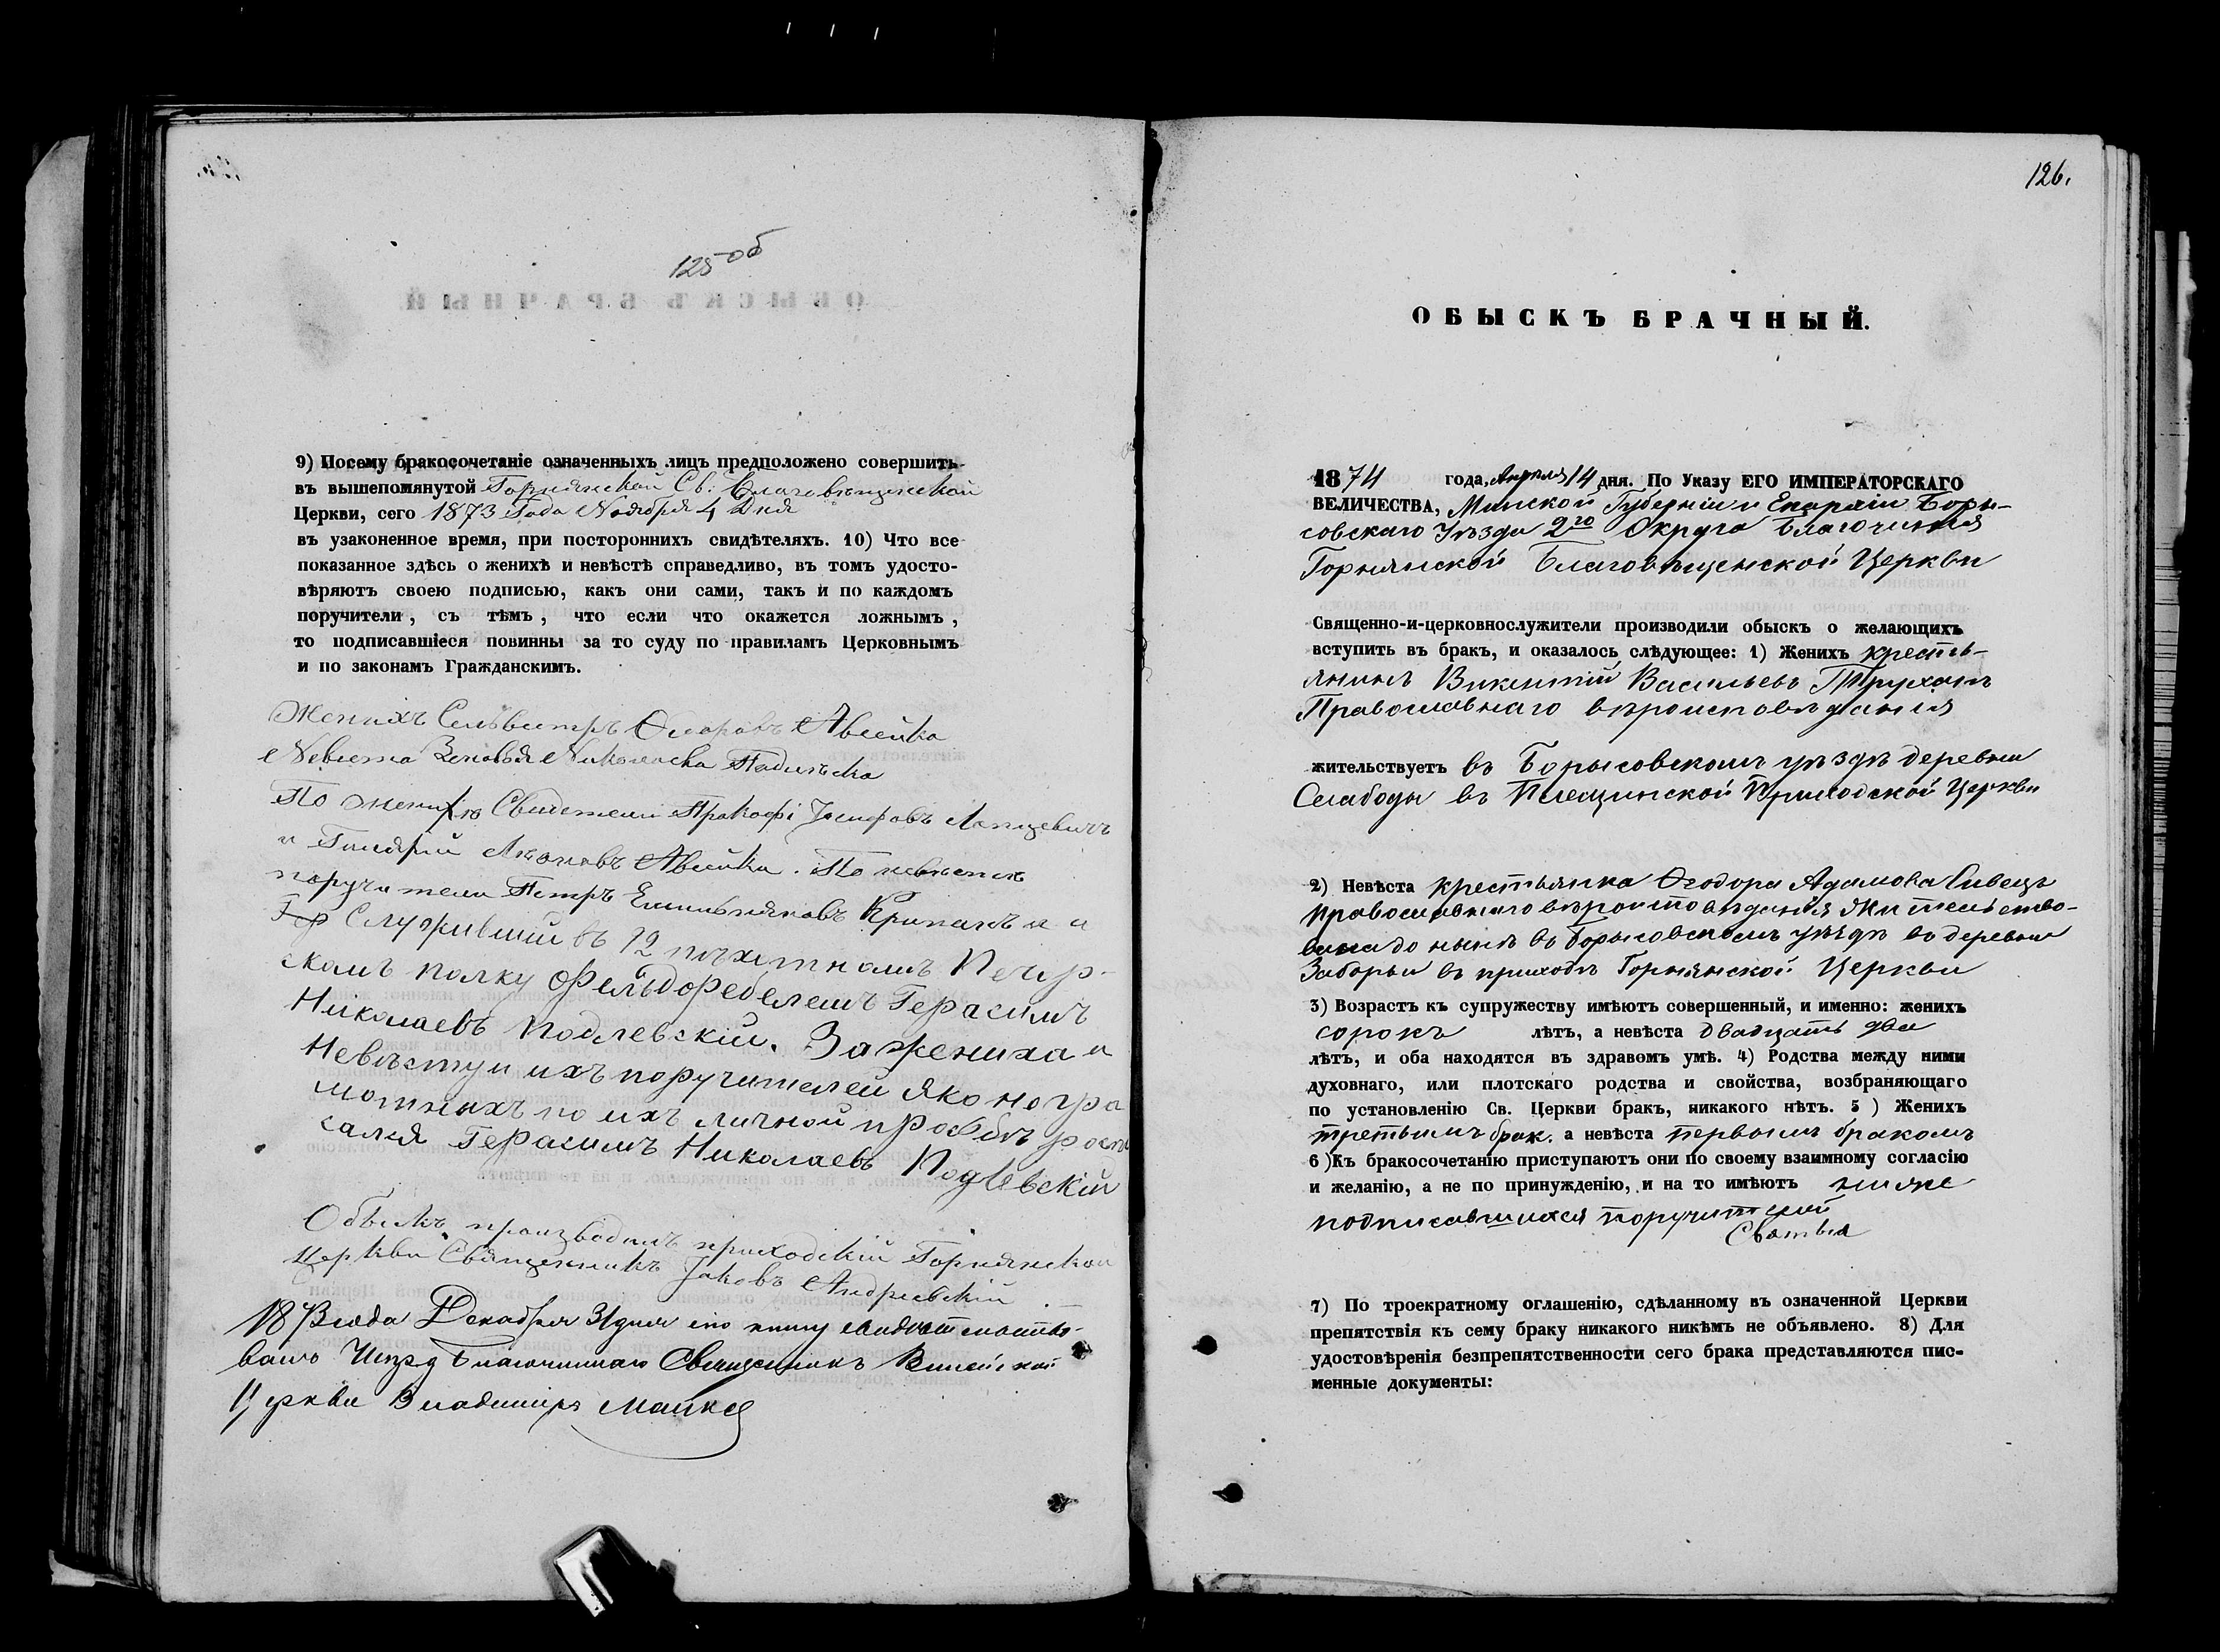 125 об
9) Посему бракосочетаніе означенныхъ лицъ предположено совершить
въ вышепомянутой Горнянской Св: Благовѣщенской
Церкви, сего 1873 Года Ноября 4 Дня
въ узаконенное время, при постороннихъ свидѣтеляхъ. 10) Что все
показанное здѣсь о женихѣ и невѣстѣ справедливо, въ томъ удосто-
вѣряютъ своею подписью, какъ они сами, такъ и по каждомъ
поручители, съ тѣмъ, что если что окажется ложнымъ,
то подписавшіеся повинны за то суду по правиламъ Церковнымъ
и по законамъ Гражданскимъ.
Женихъ Сельвестръ Авсейко
Невеста Николаева
По жениху Свидетели Прокофі Іосифовъ
и Авсейко. По невѣсте
поручители Петръ и
Служившій въ 12 пѣхотномъ
скомъ полку Фельдфебелемъ Герасимъ
Николаевъ Подлевскій. За жениха и
Невѣсту и ихъ поручителей яко негра
мотныхъ по ихъ личной просьбѣ роспи
сался Герасимъ Николаевъ Подлевскій
Обыскъ производилъ приходскій Горнянской
Церкви Священникъ Іаковъ Андреевскій
187 3 года Декабря 31 дня сію книгу свидетельство-
валъ Благочиннаго Священникъ
Церкви Владимиръ
126.
ОБЫСКЪ БРАЧНЫЙ.
1874 года, Апреля 14 дня. По Указу ЕГО ИМПЕРАТОРСКАГО
ВЕЛИЧЕСТВА, Минской Губерніи и Епархіи Бори-
совскаго Уѣзда 2го Округа Благочинія
Горнянской Благовѣщенской Церкви
Священно-и-церковнослужители производили обыскъ о желающихъ
вступить въ бракъ, и оказалось слѣдующее: 1) Женихъ кресть-
янинъ Викентій Васильевъ Труханъ
Православнаго вѣроисповѣданія
жительствуетъ въ Борисовскомъ уѣздѣ деревни
Слабоды въ Плещинской Приходской Церкви
2) Невѣста крестьянка Ѳеодора Адамова Сивецъ
православнаго вѣроисповѣданія жительство-
вала до нынѣ въ Борисовскомъ уѣздѣ въ деревни
Заборьи въ приходѣ Горнянской Церкви
3) Возрастъ къ супружеству имѣютъ совершенный, и именно: женихъ
сорокъ лѣтъ, а невѣста двадцать два
лѣтъ, и оба находятся въ здравомъ умѣ. 4) Родства между ними
духовнаго, или плотскаго родства и свойства, возбраняющаго
по установленію Св. Церкви бракъ, никакого нѣтъ. 5 ) Женихъ
третьимъ брак. а невѣста первымъ бракомъ
6 )Къ бракосочетанію приступаютъ они по своему взаимному согласію
и желанію, а не по принужденію, и на то имѣютъ ниже
подписавшихся поручителей
7) По троекратному оглашенію, сдѣланному въ означенной Церкви
препятствія къ сему браку никакого никѣмъ не объявлено. 8) Для
удостовѣренія безпрепятственности сего брака представляются пис-
менные документы: